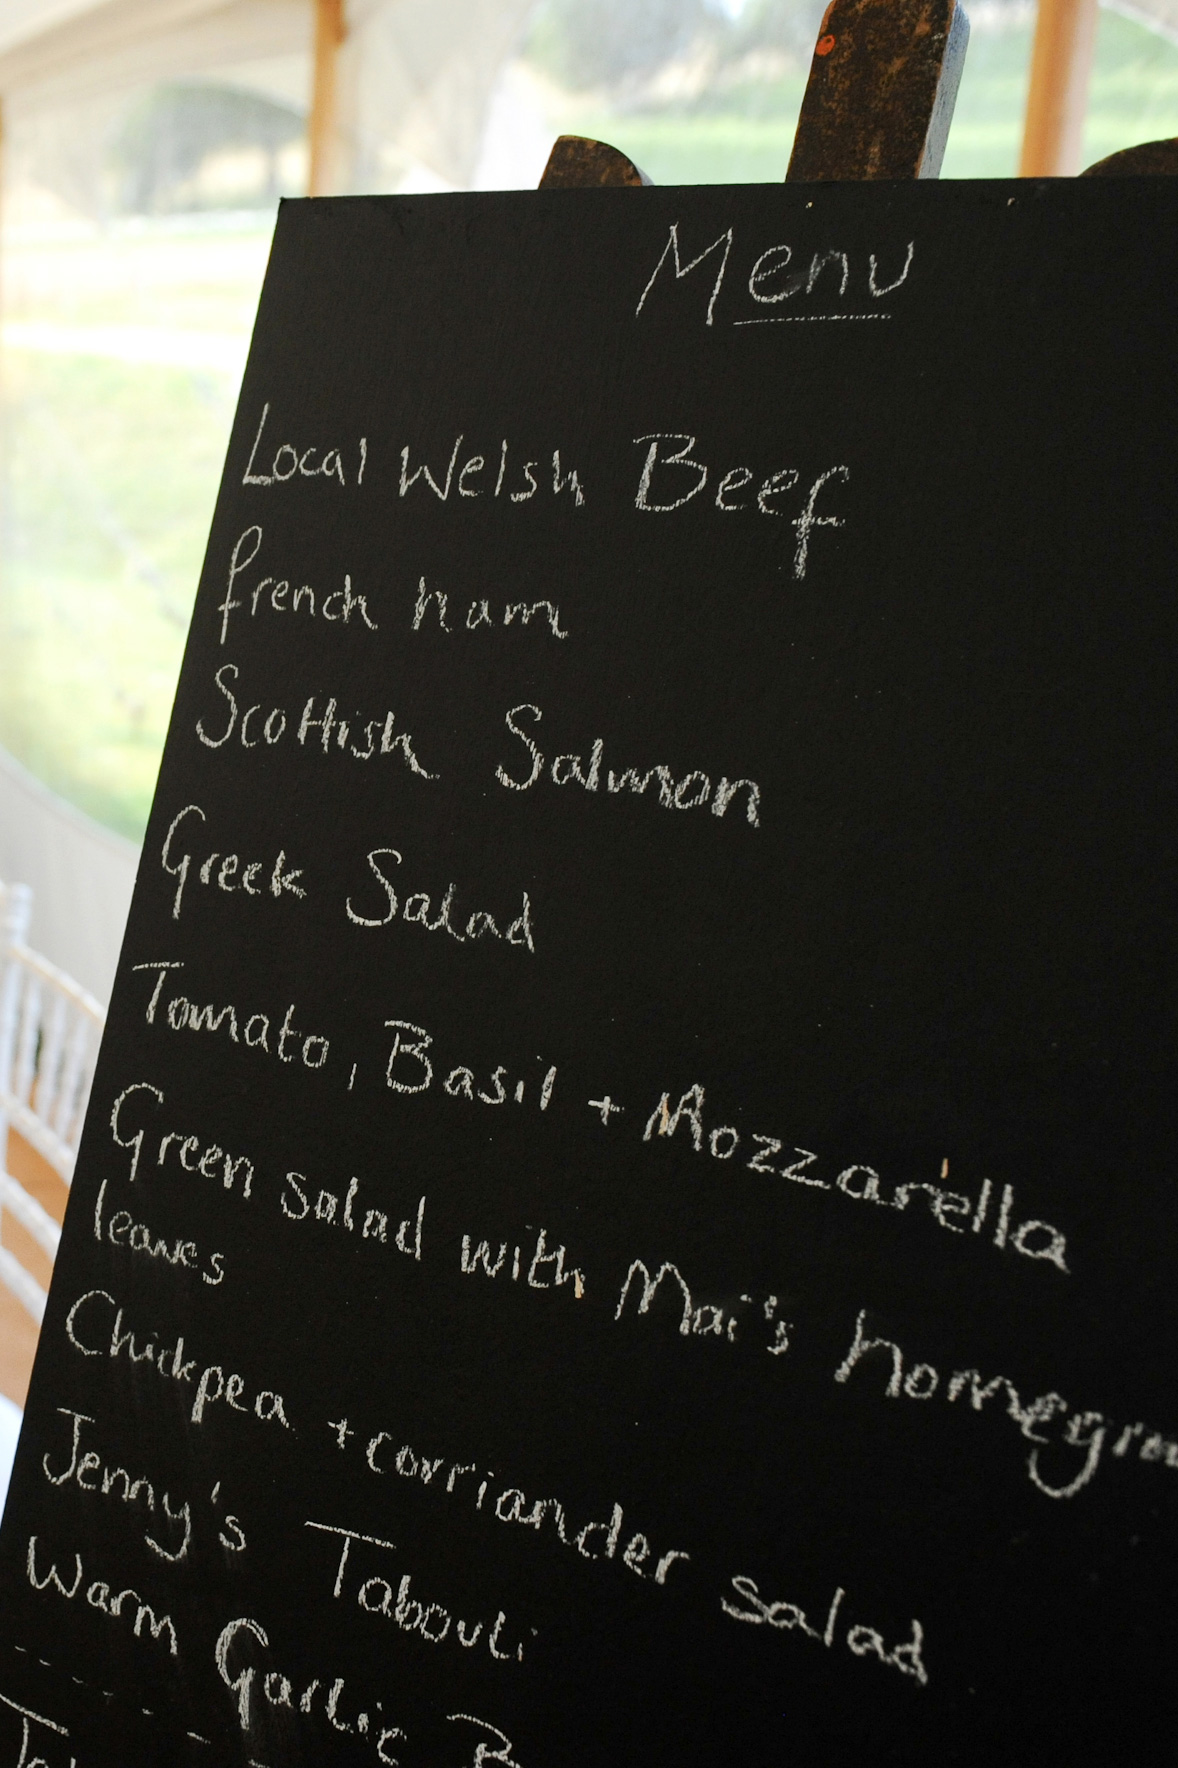 Menu
Local Welsh Beef
french ham
Scottish Salmon
Greek Salad
Tomato, Basil + Mozzarella
Green salad with Mai's
leaves
Chickpea + corriander salad
Jenny's Tabouli
Warm Garlic